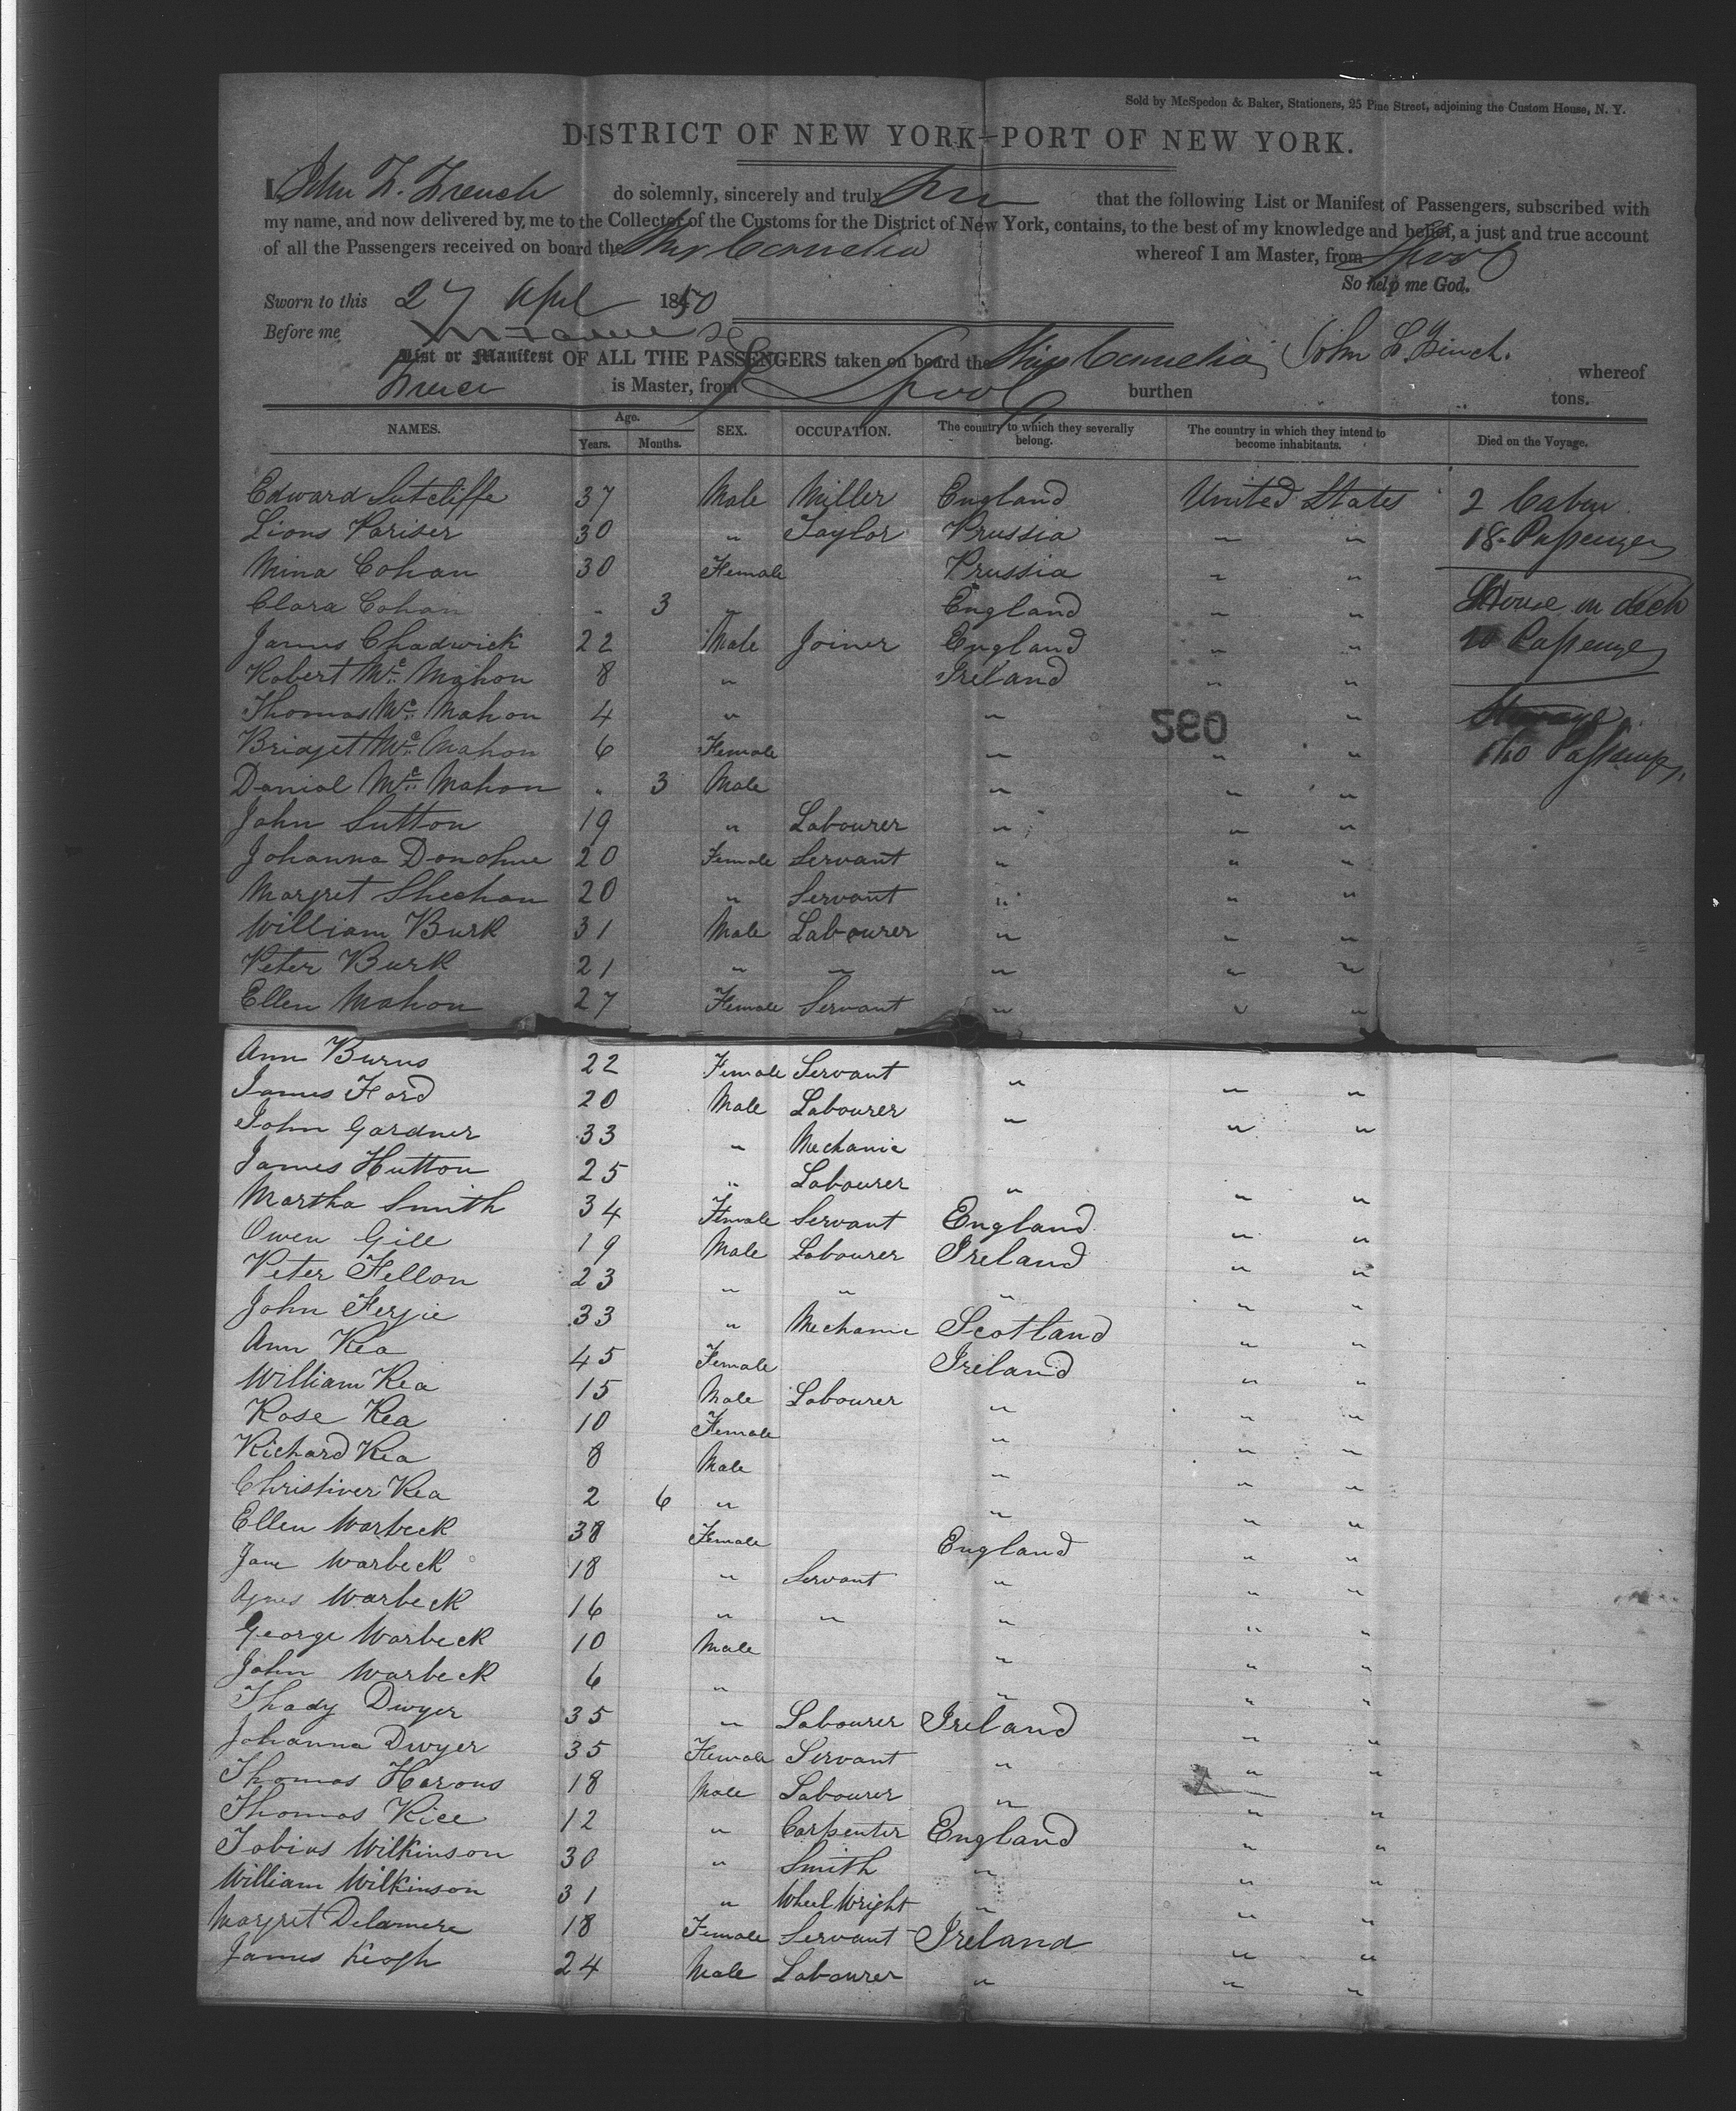 Sold by McSpedon & Baker, Stationers, 25 Pine Street, adjoining the Custom House, N. Y.
DISTRICT OF NEW YORK—PORT OF NEW YORK.
I, John L. French do solemnly, sincerely and truly that the following List or Manifest of Passengers, subscribed with
my name, and now delivered by me to the Collector of the Customs for the District of New York, contains, to the best of my knowledge and belief, a just and true account
of all the Passengers received on board the Ship Cornelia whereof I am Master, from Lpool
So help me God.
Sworn to this 27 April 1850
Before me,
John L. French.
List or Manifest OF ALL THE PASSENGERS taken on board the Ship Cornelia whereof
French is Master, from Lpool burthen tons.
NAMES. Age. Years. Months. SEX. OCCUPATION. The country to which they severally belong. The country in which they intend to become inhabitants. Died on the Voyage.
Edward Sutcliffe 37 Male Miller England United States 2 Cabin
Lions Pariser 30 " Taylor Prussia " " 18 Passengers
Mina Cohan 30 Female Prussia " "
Clara Cohan " 3 " England " " House on deck
James Chadwick 22 Male Joiner England " " 20 Passengers
Robert Mc Mahon 8 " Ireland " "
Thomas Mc Mahon 4 " " " Steerage
580
Bridget Mc Mahon 6 Female " " " Passengers
Danial Mc Mahon " 3 Male " " "
John Sutton 19 " Labourer " " "
Johanna Donohue 20 Female Servant " " "
Margret Sheehan 20 " Servant " " "
William Burk 31 Male Labourer " " "
Peter Burk 21 " " " " "
Ellen Mahon 27 Female Servant " " "
Ann Burns 22 Female Servant " " "
James Ford 20 Male Labourer " " "
John Gardner 33 " Mechanic
James Hutton 25 " Labourer " " "
Martha Smith 34 Female Servant England " "
Owen Gill 19 Male Labourer Ireland " "
Peter Fellon 23 " " " " "
John Fergie 33 " Mechanic Scotland " "
Ann Kea 45 Female Ireland " "
William Kea 15 Male Labourer " " "
Rose Kea 10 Female " " "
Richard Kea 8 Male " " "
Christiver Kea 2 6 " " " "
Ellen Warbeck 38 Female England " "
Jane Warbeck 18 " Servant " " "
Agnes Warbeck 16 " " " " "
George Warbeck 10 Male " " "
John Warbeck 6 " " " "
Thady Dwyer 35 " Labourer Ireland " "
Johanna Dwyer 35 Female Servant " " "
Thomas Harous 18 Male Labourer " " "
Thomas Rice 12 " Carpenter England " "
Tobius Wilkinson 30 " Smith " " "
William Wilkinson 31 " Wheel Wright " " "
Margret Delamere 18 Female Servant Ireland " "
James Keogh 24 Male Labourer " " "